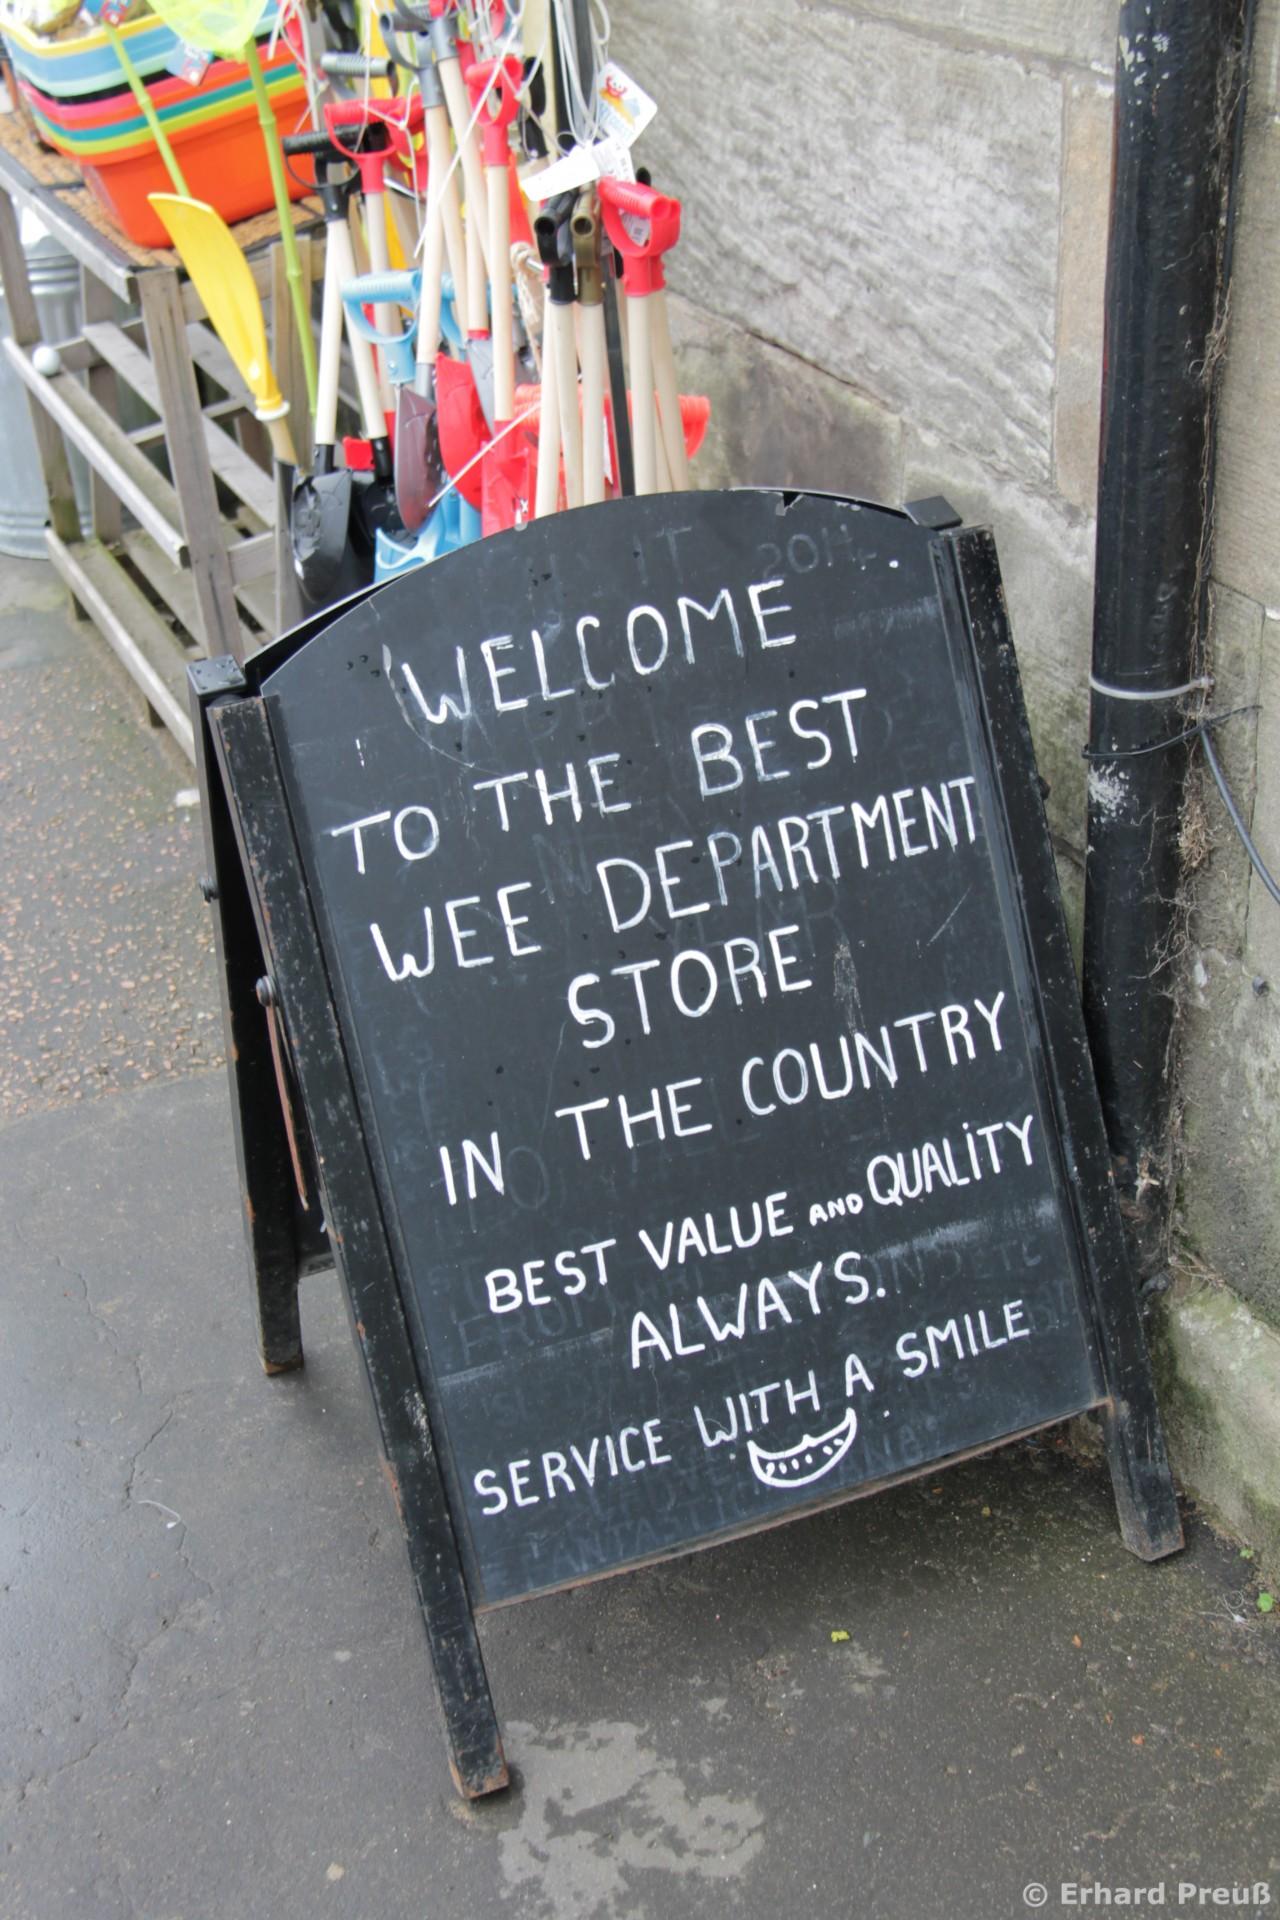 WELCOME
TO THE BEST
WEE DEPARTMENT
STORE
IN THE COUNTRY
BEST VALUE AND QUALITY
ALWAYS.
SERVICE WITH A SMILE
© Erhard Preuß